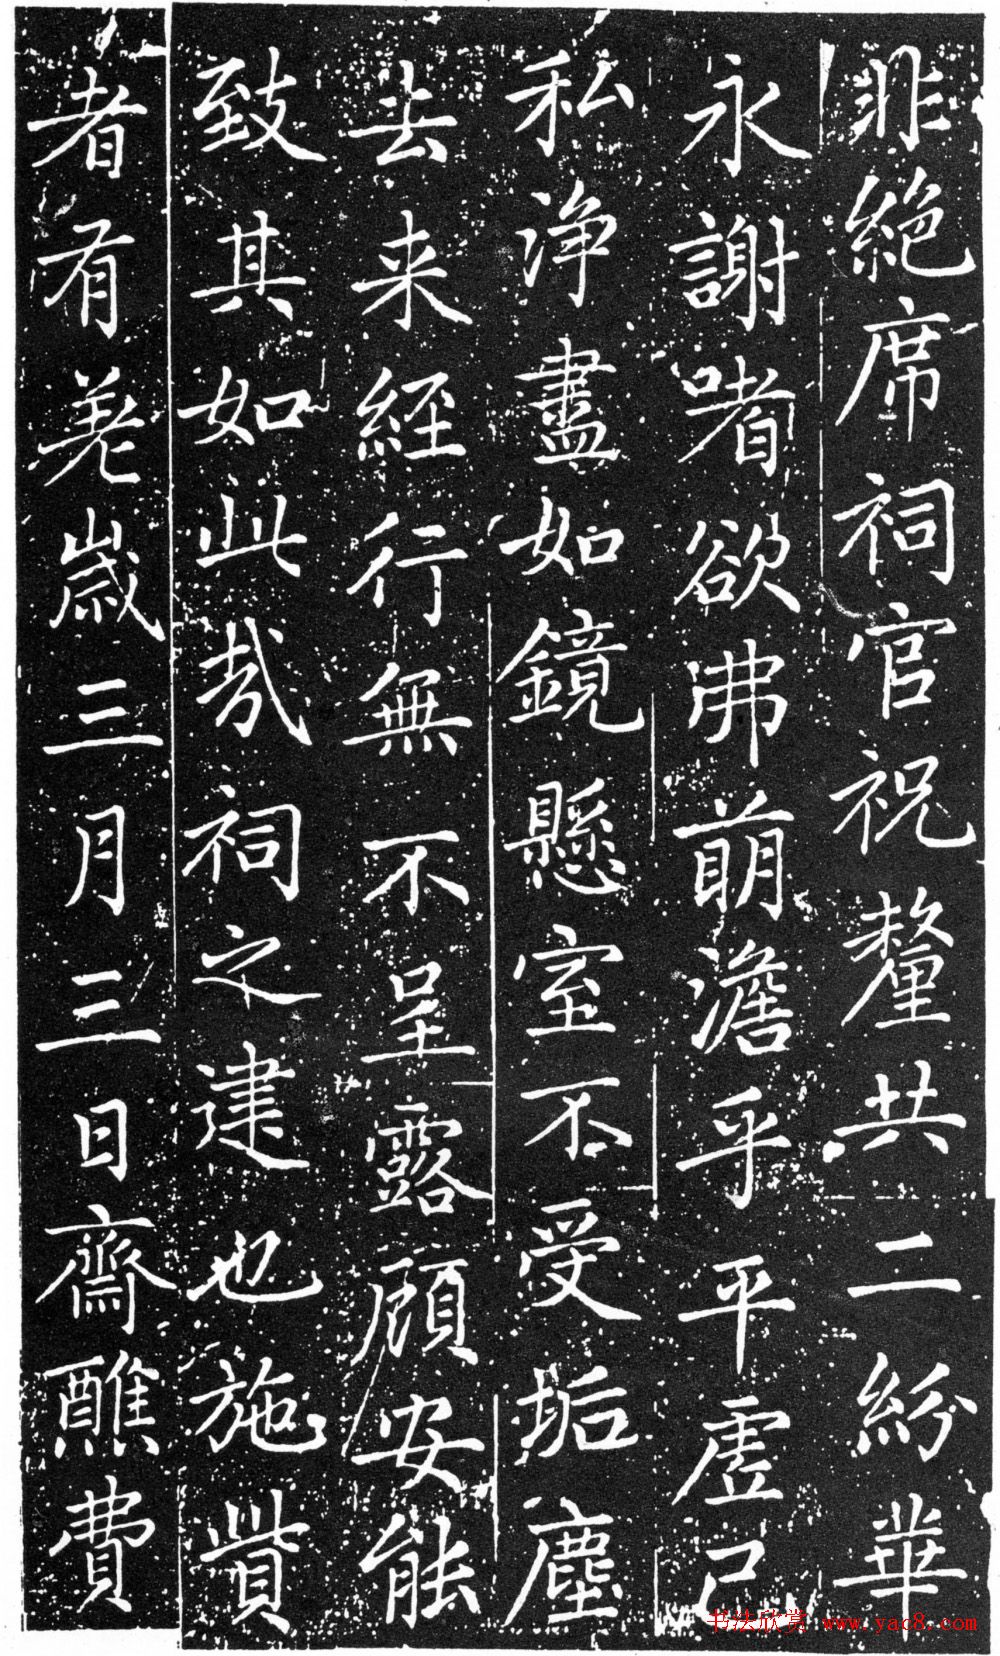 非絕席祠官祝釐共二紛華
永謝嗜欲弗萌澹乎平虛己
私淨盡如鏡懸室不受垢塵
去来經行無不呈露顧安能
致其如此哉祠之建也施貲
者有差歲三月三日齋醮費
书法欣赏 www.yac8.com